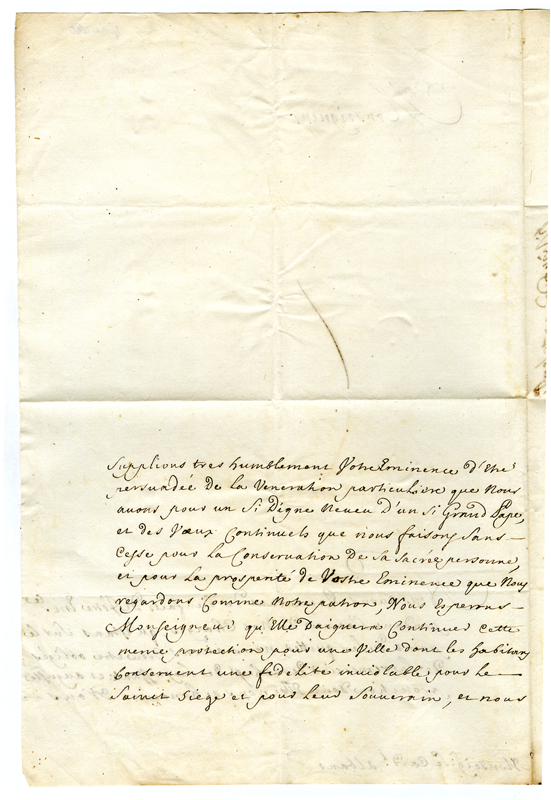 Supplions tres humblement Votre Eminence d'etre
persuadée de la Veneration particuliere que Nous
avons pour un Si Digne Neveu D'un Si Grand Pape,
et des Vœux Continuels que nous faisons Sans-
Cesse pour la Conservation de Sa Sacrée personne,
et pour la prosperité de Vostre Eminence que Nous
regardons Comme Notre patron, Nous Esperons-
Monseigneur qu'Elle Daignera Continuer Cette
meme protection pour une Ville dont les habitans
Conservent une fidelité inviolable pour le-
Sainct Siege et pour leur Souverain, et nous